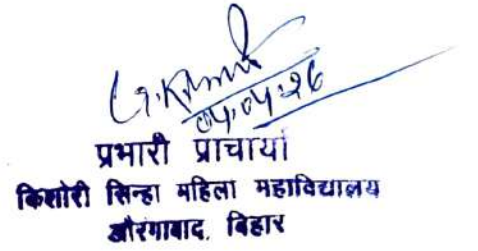 04.04.26
प्रभारी प्राचार्या
किशोरी सिन्हा महिला महाविद्यालय
औरंगाबाद, बिहार